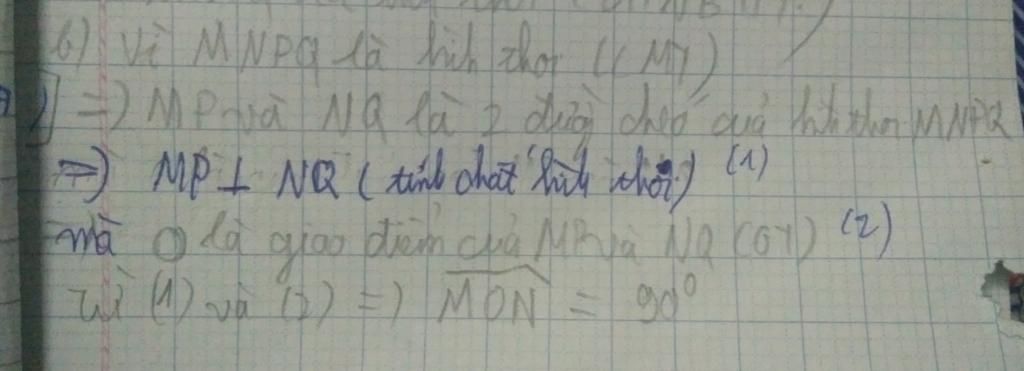 b) Vì MNPQ là hình thoi (CMT)
=> MP và NQ là 2 đường chéo của hình thoi MNPQ
=> MP ⊥ NQ (tính chất hình thoi) (1)
mà O là giao điểm của MP và NQ (GT) (2)
Từ (1) và (2) => MON = 90°